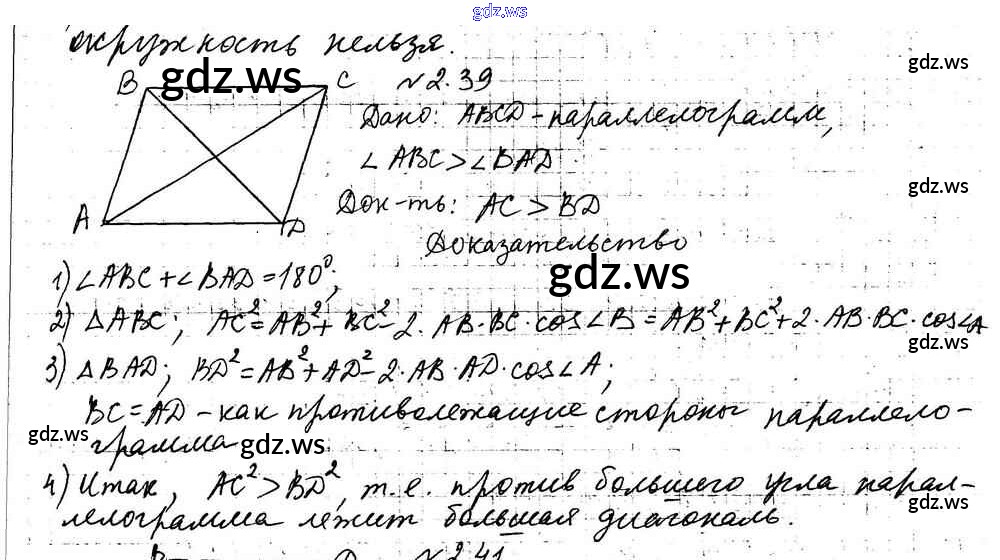 gdz.ws
окружность нельзя.
gdz.ws
B C №2.39
gdz.ws
Дано: ABCD - параллелограмм,
∠ABC > ∠BAD
gdz.ws
A D
Док-ть: AC > BD
Доказательство
gdz.ws
1) ∠ABC + ∠BAD = 180°;
2) △ABC; AC² = AB² + BC² - 2·AB·BC·cos∠B = AB² + BC² + 2·AB·BC·cos∠A
gdz.ws
3) △BAD; BD² = AB² + AD² - 2·AB·AD·cos∠A;
BC = AD - как противолежащие стороны параллело-
gdz.ws
грамма
gdz.ws
gdz.ws
4) Итак, AC² > BD², т.е. против большего угла парал-
gdz.ws
gdz.ws
лелограмма лежит большая диагональ.
№2.41